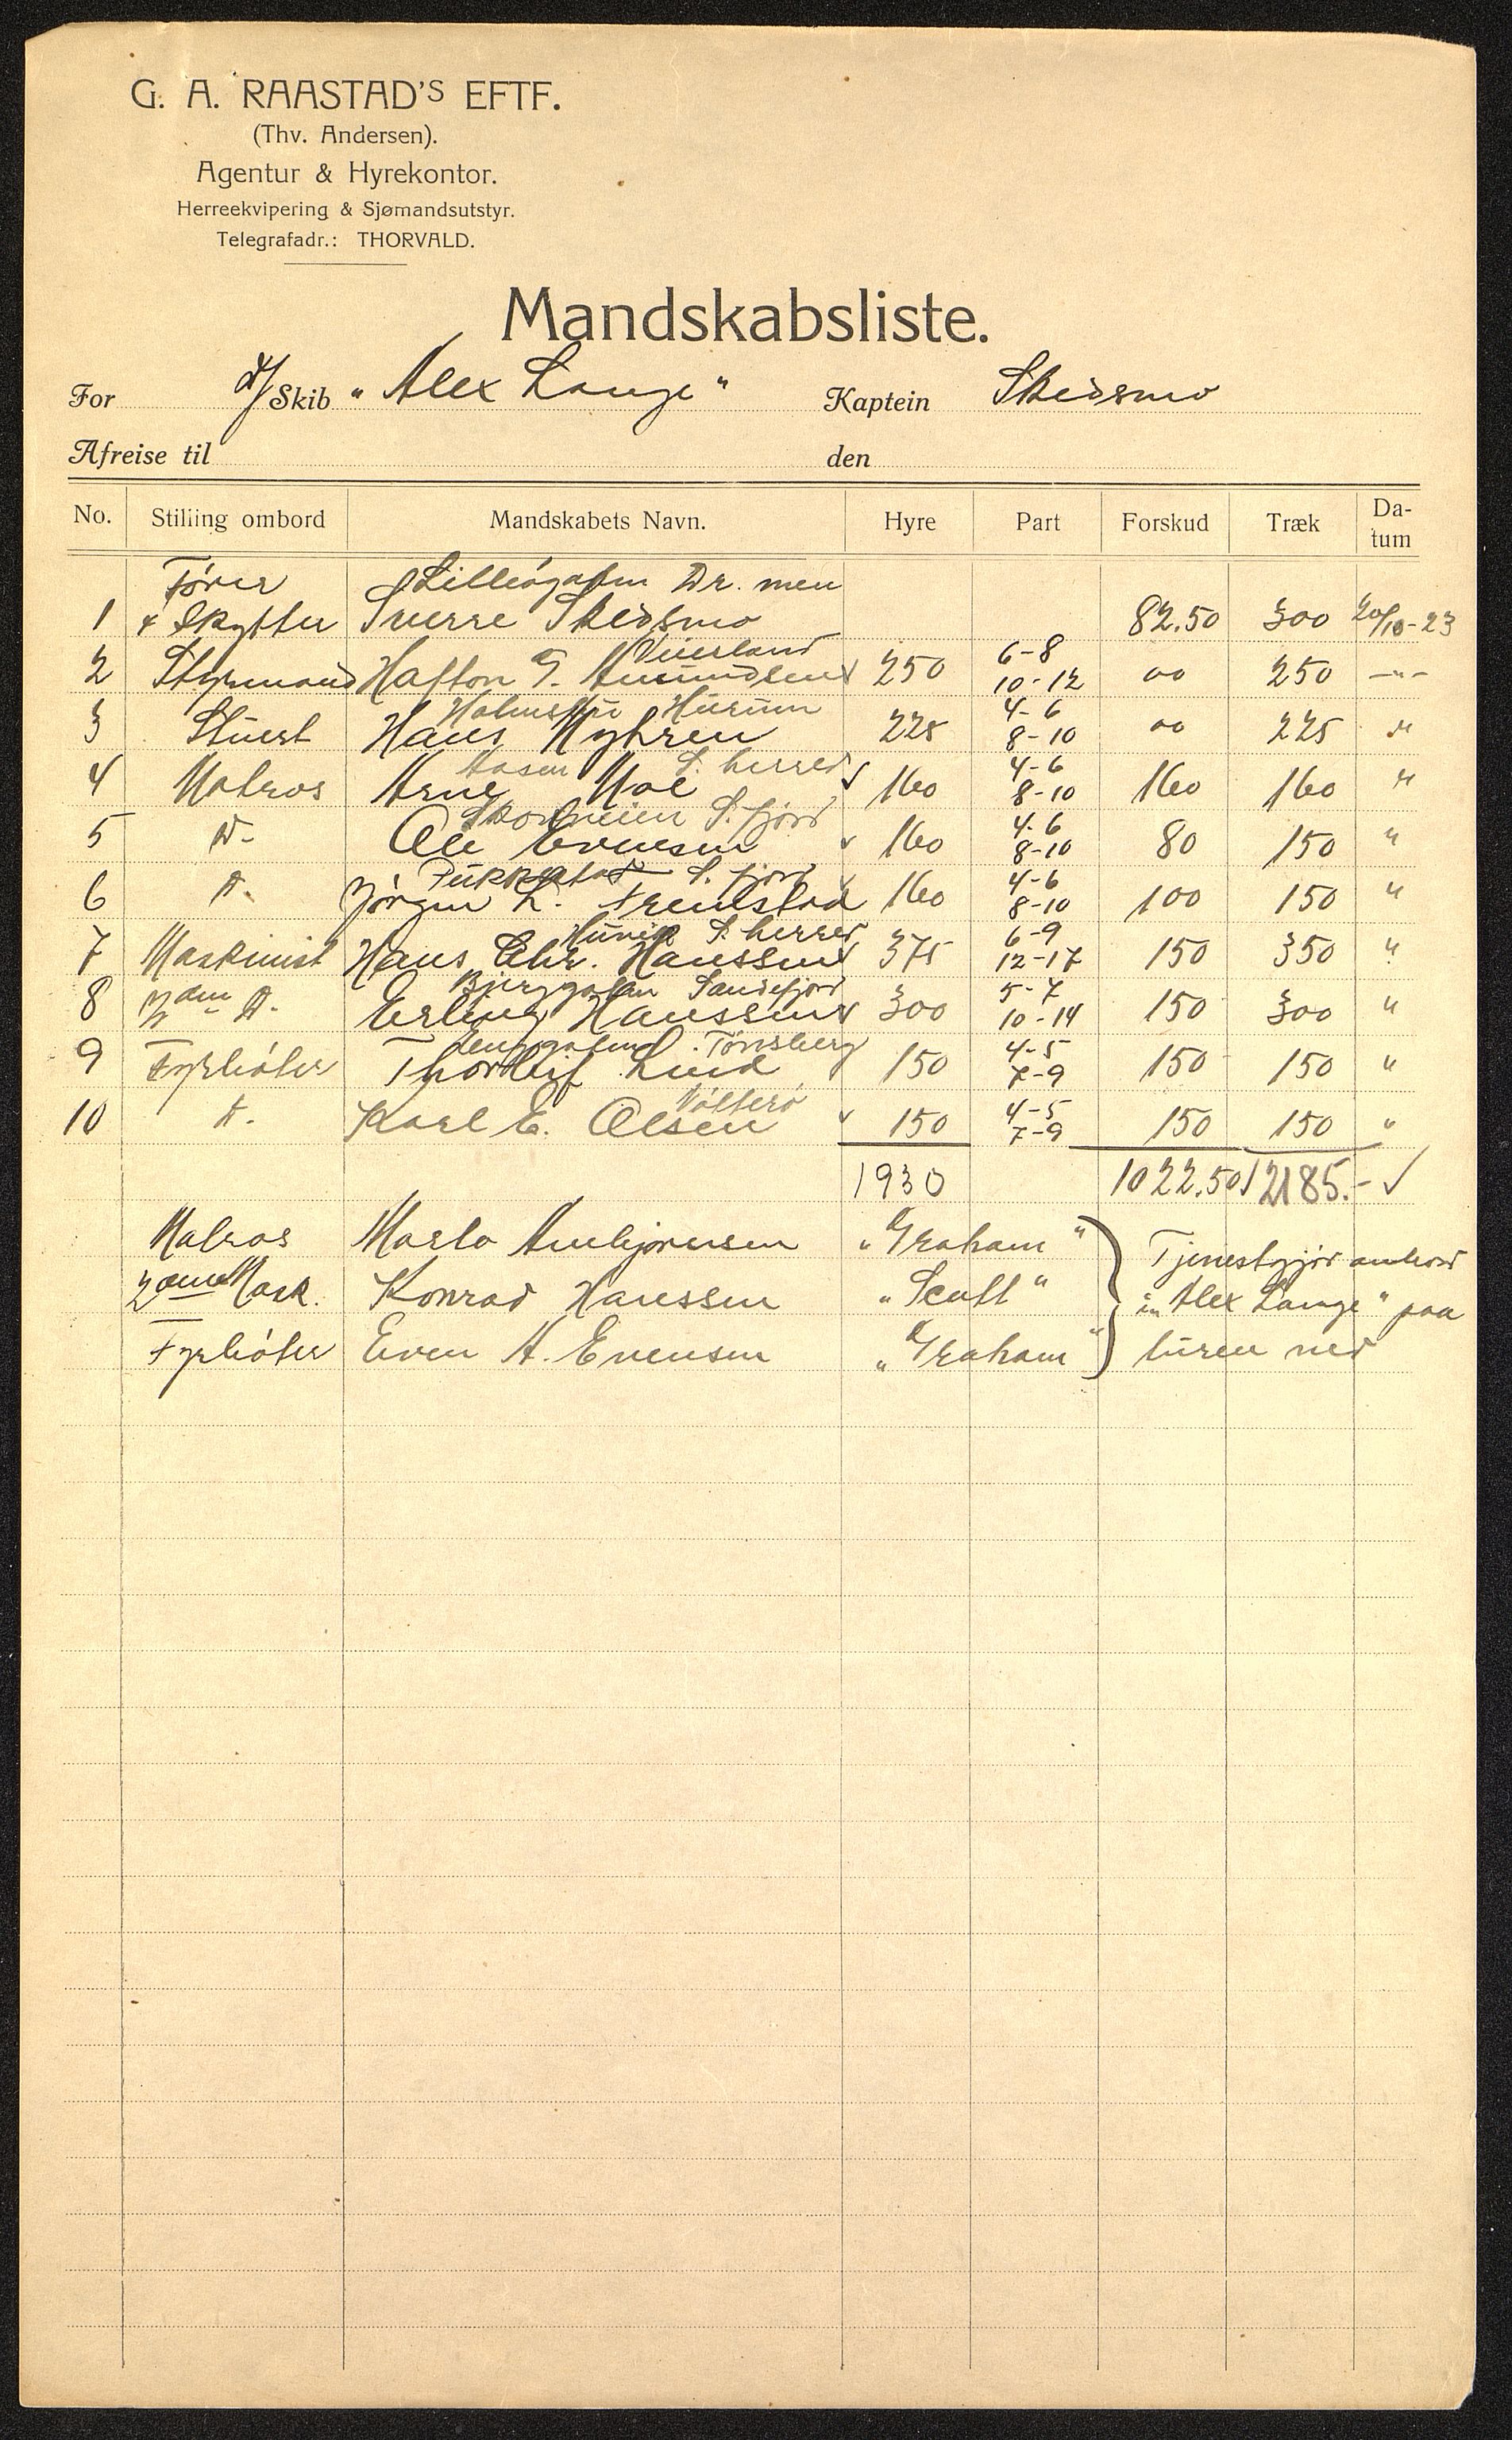 G. A. RAASTAD'S EFTF.
(Thv. Andersen).
Agentur & Hyrekontor.
Herreekvipering & Sjømandsutstyr.
Telegrafadr.: THORVALD.
Mandskabsliste.
For d/Skib „Alex Lange" Kaptein Skedsmo
Afreise til den
No. Stilling ombord Mandskabets Navn. Hyre Part Forskud Træk Da-tum
Förer Dr. men
1 & Skytter Sverre Skedsmo 82.50 300 20/10-23
Veierland 6-8
2 Styrmand Hafton T. Amundsen 250 10-12 oo 250 -"-
Holmsbu Hurum 4-6
3 Stuert Hans Myhren 225 8-10 oo 225 "
Aasen S. herred 4-6
4 Matros Arne Moe 160 8-10 160 160 "
S. fjord 4-6
5 D. Ole Evensen 160 8-10 80 150 "
S. fjord 4-6
6 D. Jörgen L. 160 8-10 100 150 "
S. herred 6-9
7 Maskinist Hans Chr. Hanssen 375 12-17 150 350 "
Bjerggaten Sandefjord 5-7
8 2den D. Erling Hanssen 300 10-14 150 300 "
Tönsberg 4-5
9 Fyrböter Thorleif Lund 150 7-9 150 150 "
4-5
10 D. Karl E. Olsen 150 7-9 150 150 "
1930 1022.50 2185.-
Matros Ambjörnsen „Graham" Tjenestgjör ombord
2den Mask. Konrad Hanssen „Scott" i „Alex Lange" paa
Fyrböter Even A. Evensen „Graham" turen ned